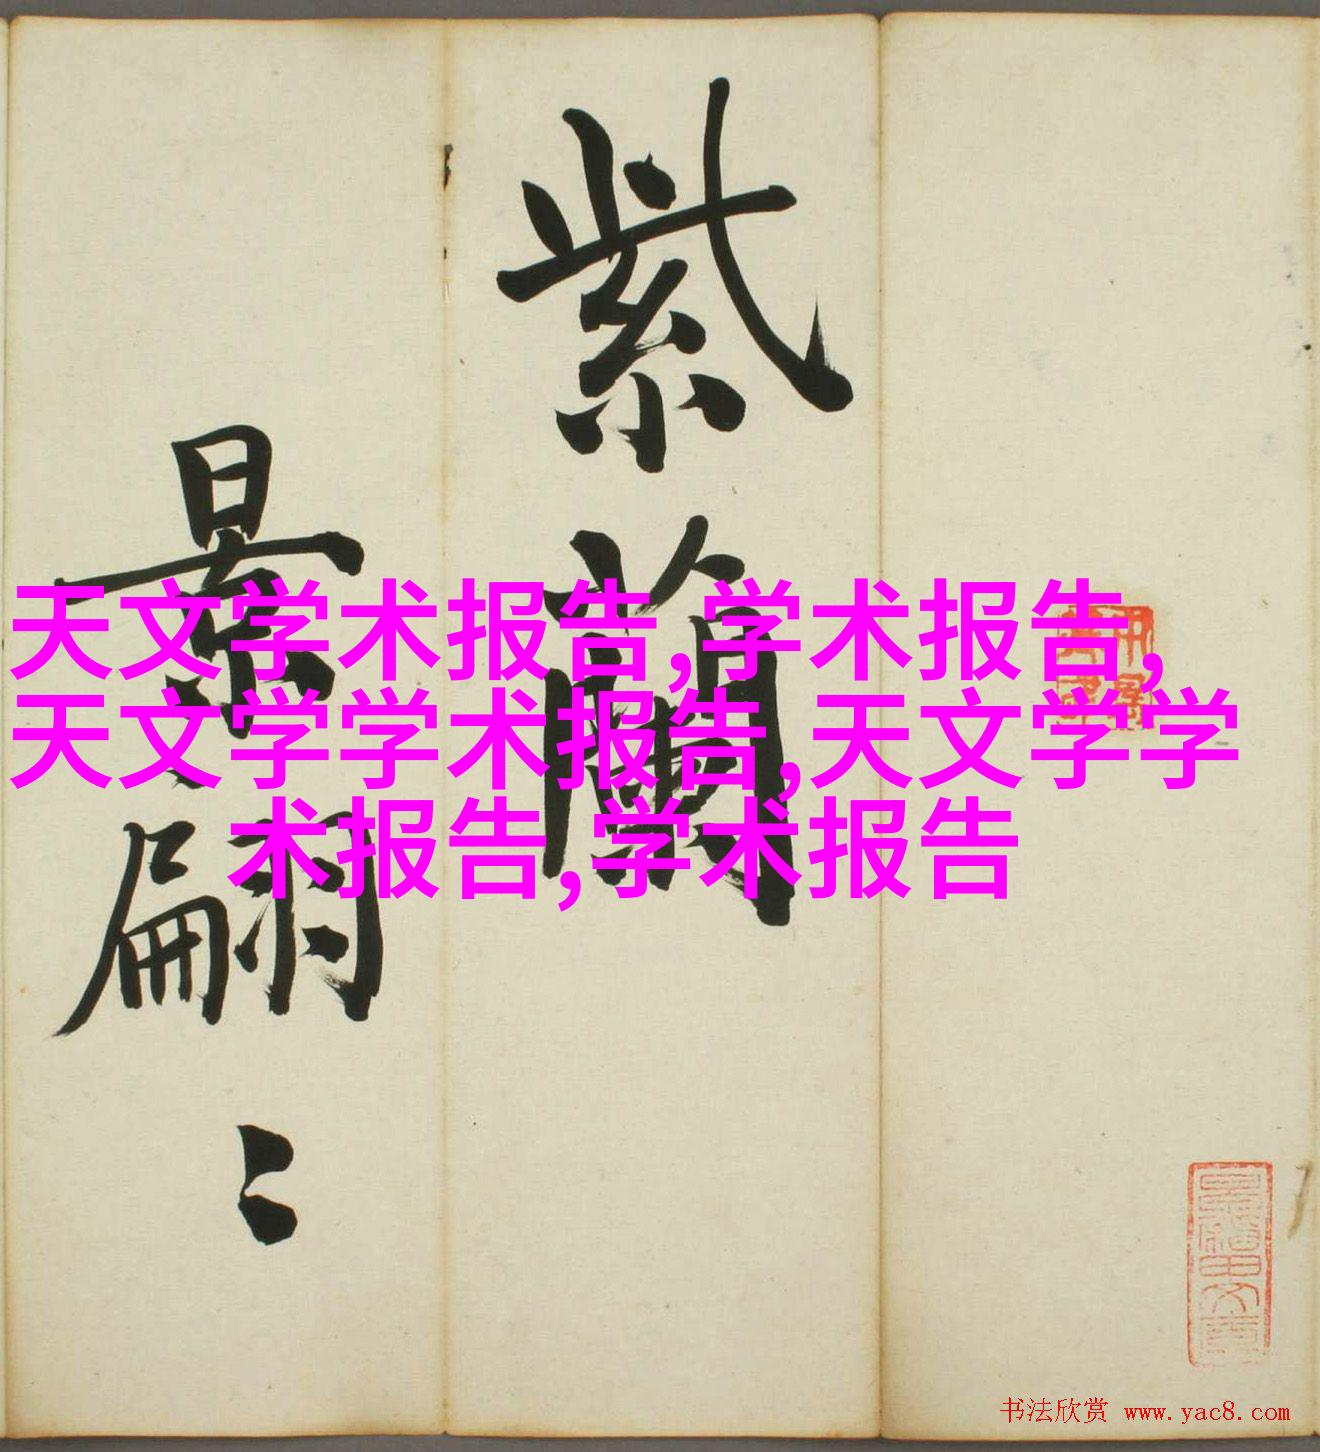 紫蘭
景翩〻
天文学术报告,学术报告,
天文学学术报告,天文学学
术报告,学术报告
书法欣赏 www.yac8.com